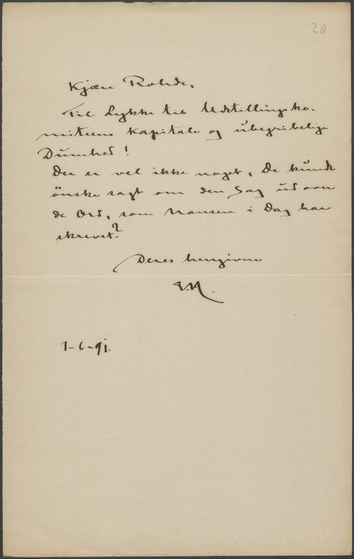 20
Kjære Rohde,
Til Lykke til Udstillingsko-
miteens kapitale og ubegribelige
Dumhed!
Der er vel ikke noget, De kunde
ønske sagt om den Sag udover
de Ord, som Nansen i Dag har
skrevet?
Deres hengivne
EM.
1-6-91.